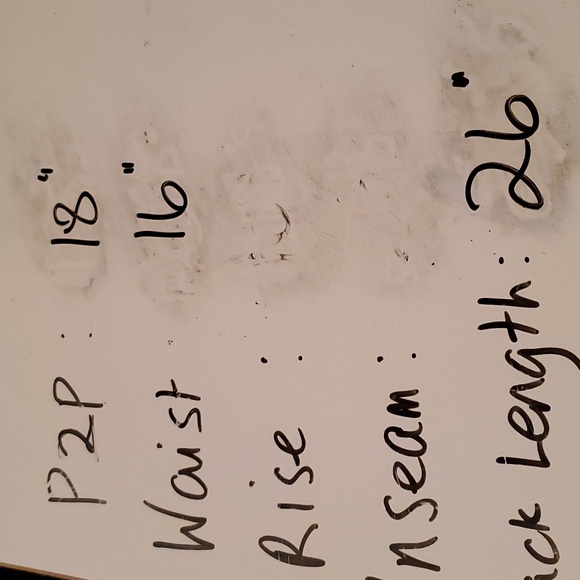 P2P : 18"
Waist 16"
Rise :
Inseam :
ck Length : 26"